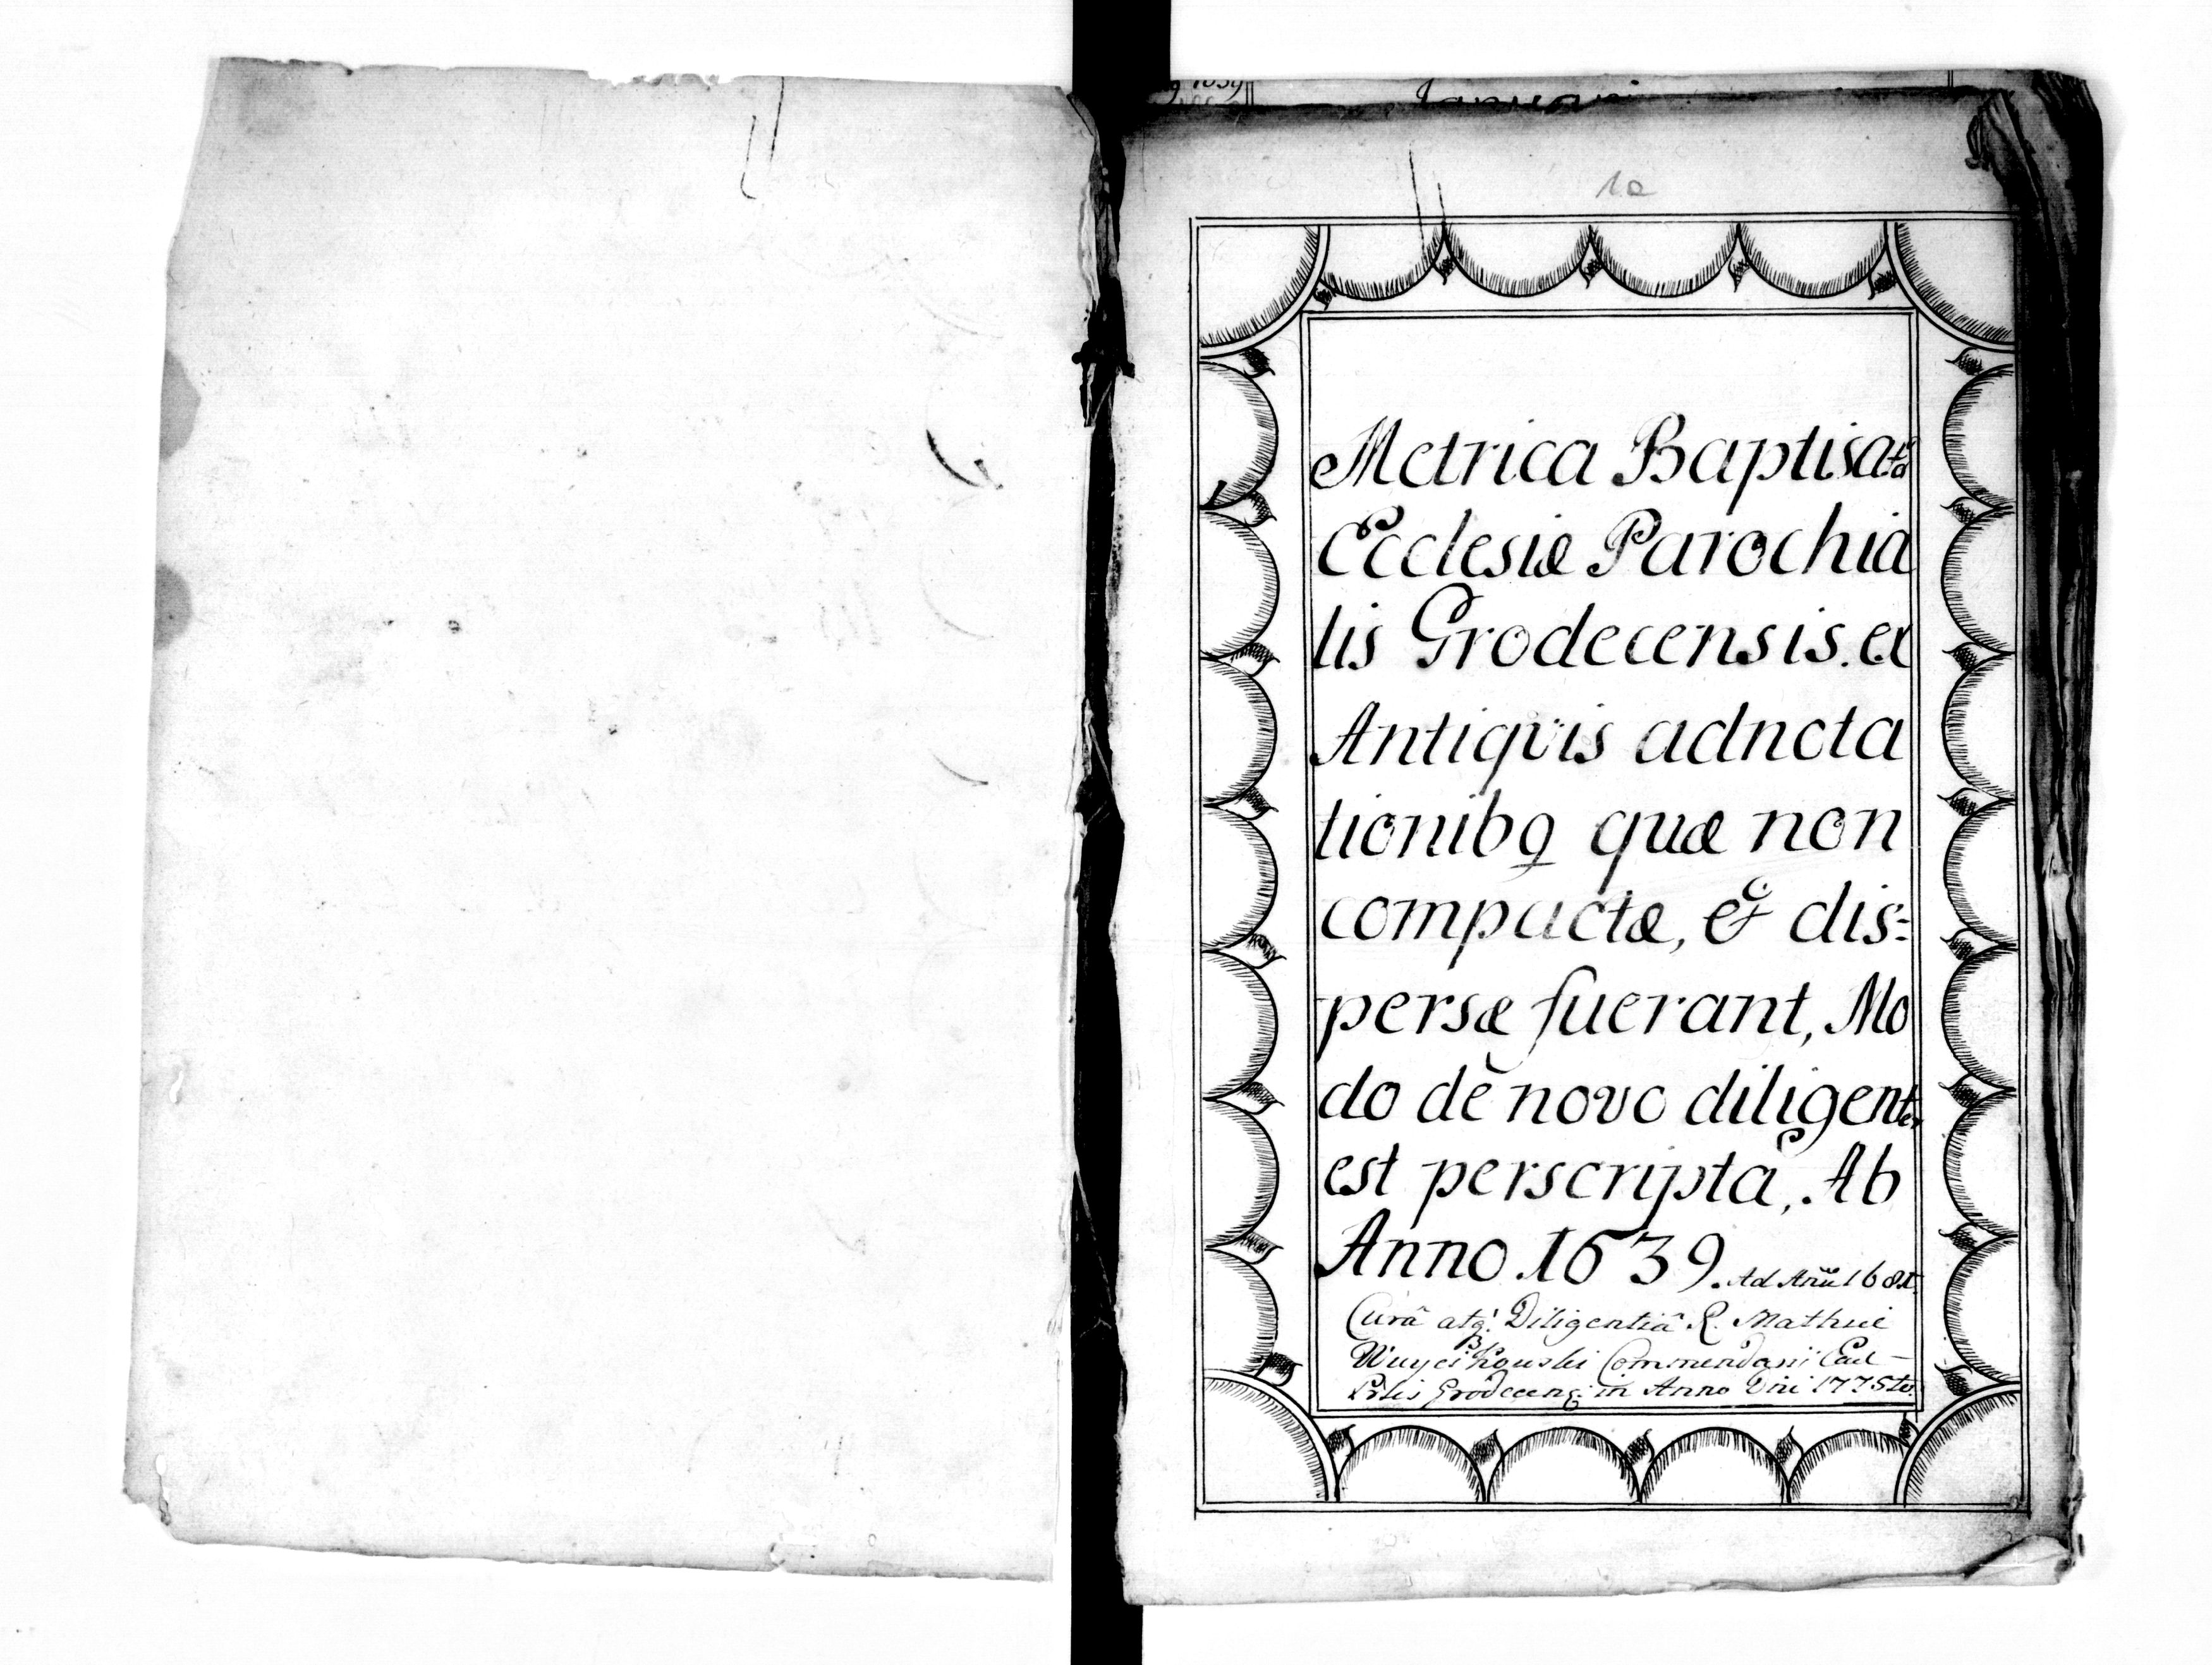 Januari
1a
Metrica Baptisato
Ecclesiæ Parochia
lis Grodecensis. ex
Antiqvis adnota
tionibq quæ non
compactæ, & dis=
persæ fuerant, Mo
do dĕ novo diligenter
est perscripta, Ab
Anno 1639. Ad Anũ 168
Curâ atq: Diligentiâ R. Mathiæ
Commendarii Eccl
Prlis Grodecens: in Anno Dni 1775to.